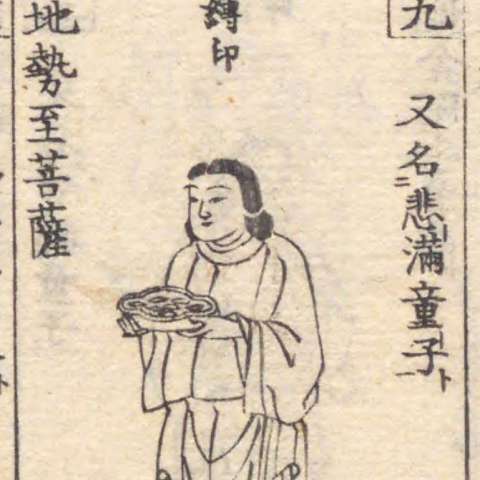 九
又名悲滿童子
鑄印
地勢至菩薩